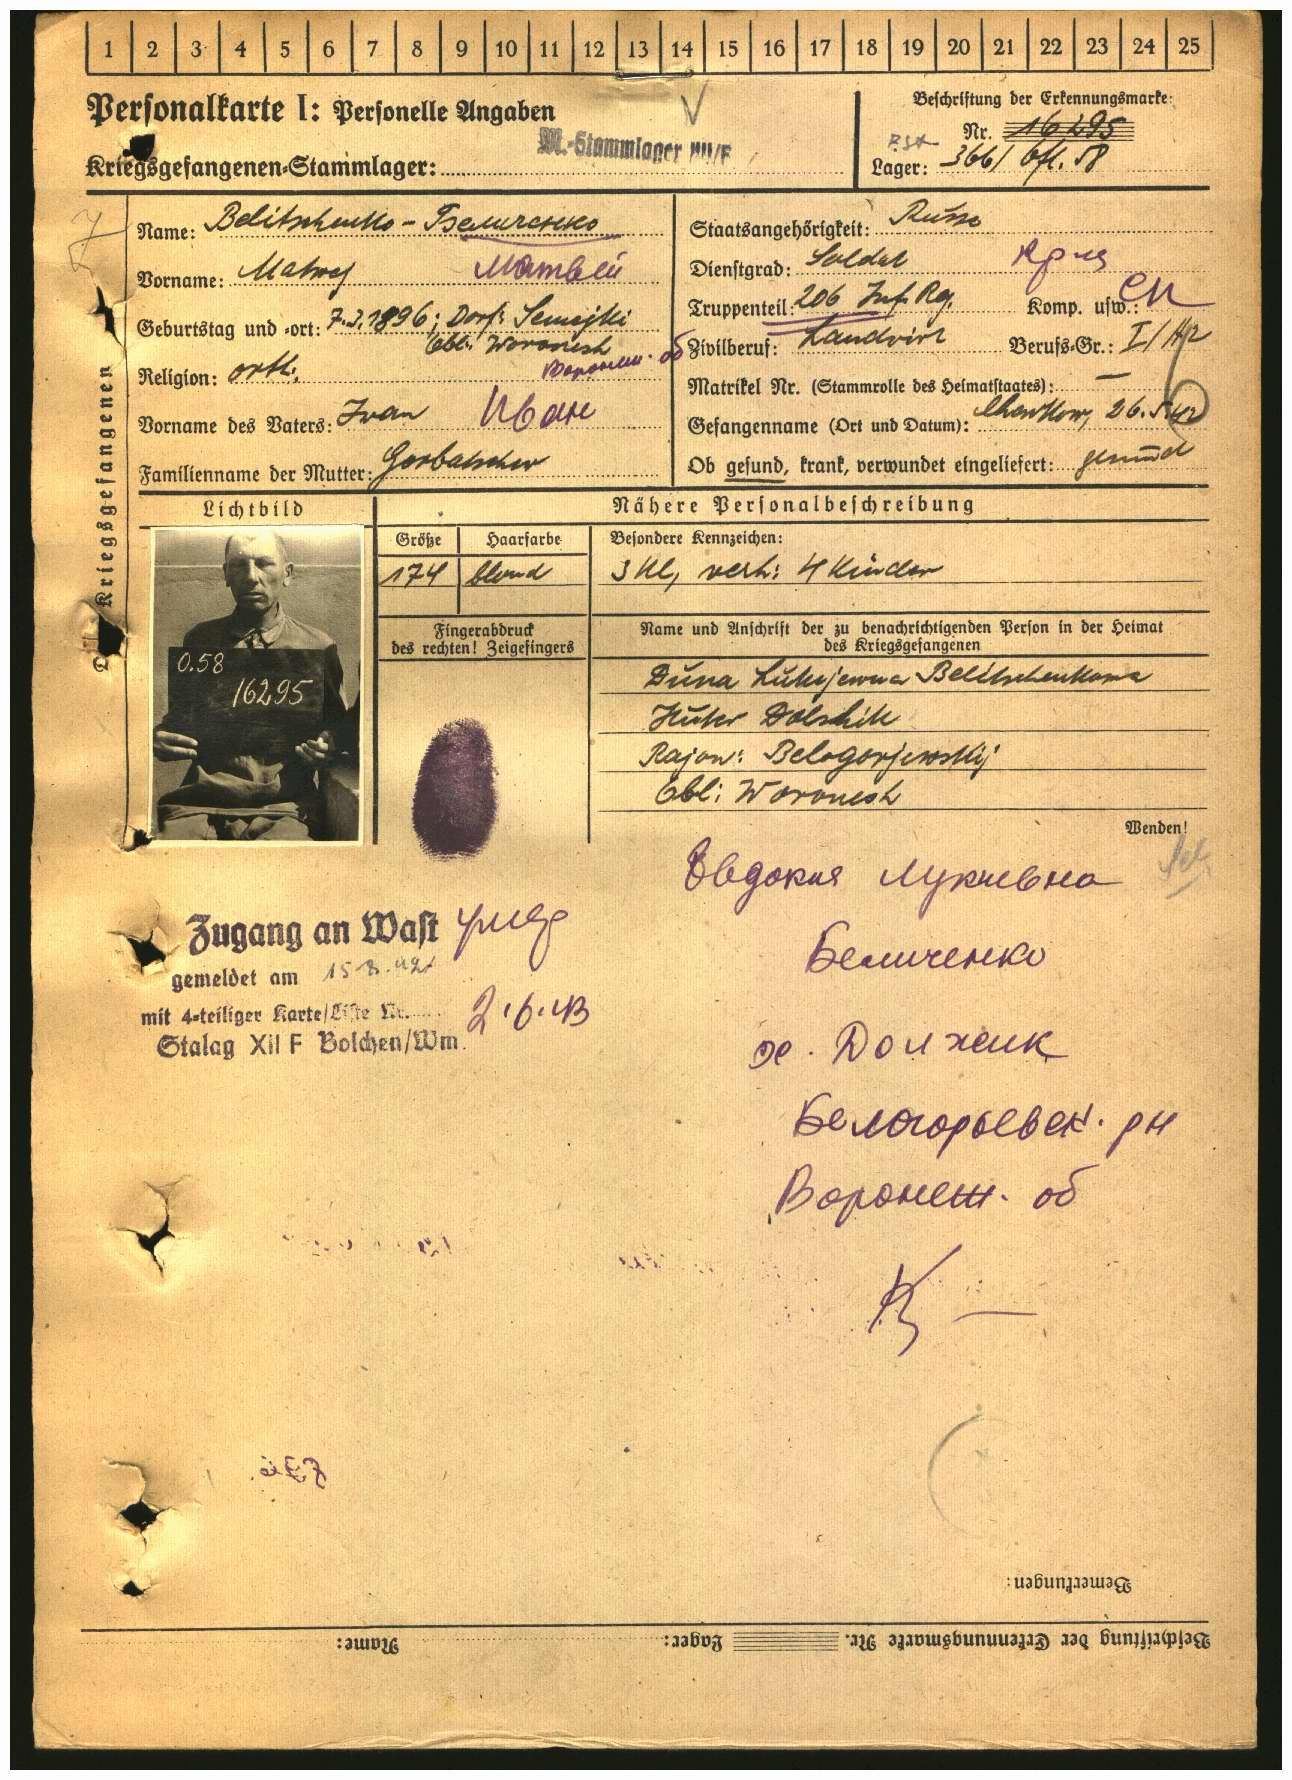 1 2 3 4 5 6 7 8 9 10 11 12 13 14 15 16 17 18 19 20 21 22 23 24 25
Personalkarte I: Personelle Angaben
Kriegsgefangenen-Stammlager:
M.-Stammlager XII/F
Beschriftung der Erkennungsmarke:
Nr. 16295
Lager: 366/ Ofl. 58
Kriegsgefangenen
Name: Belitschenko - Беличенко
Vorname: Matwej Матвей
Geburtstag und -ort: 7.3.1896; Dorf: Semejki
Obl. Woronesh
Воронеж. об
Religion: orth.
Vorname des Vaters: Iwan Иван
Familienname der Mutter: Gorbatschew
Staatsangehörigkeit: Russe
Dienstgrad: Soldat
Truppenteil: 206 Inf. Rg. Komp. usw.: сп
Zivilberuf: Landwirt Berufs-Gr.: I/
Matrikel Nr. (Stammrolle des Heimatstaates): —
Gefangennahme (Ort und Datum): Charkow, 26.5.42
Ob gesund, krank, verwundet eingeliefert: gesund
Lichtbild
Nähere Personalbeschreibung
Größe Haarfarbe Besondere Kennzeichen:
174 blond 3 Kl, verh: 4 Kinder
0.58
16295
Fingerabdruck
des rechten! Zeigefingers
Name und Anschrift der zu benachrichtigenden Person in der Heimat
des Kriegsgefangenen
Lukijewna Belitschenkowa
Hutor Dolshik
Rajon: Belogorjewskij
Obl: Woronesh
Wenden!
Евдокия Лукиевна
Беличенко
х. Должик
Белогорьевск. рн
Воронеж. об
Zugang an Wast
умер
gemeldet am
mit 4-teiliger Karte/Liste Nr.
2.6.43
Stalag XII F Bolchen/Wm.
Bemerkungen:
Beschriftung der Erkennungsmarke Nr. Lager: Name: